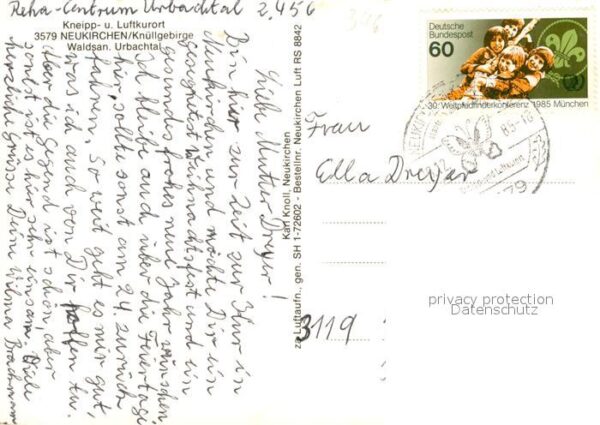 Reha-Centrum Urbachtal 2.456
Kneipp- u. Luftkurort
3579 NEUKIRCHEN/Knüllgebirge
Waldsan. Urbachtal
Liebe Mutter Dreyer!
Bin hier zur Zeit zur Kur in
Neukirchen und möchte Dir ein
gesegnetes Weihnachtsfest und ein
gesundes frohes neues Jahr wünschen.
Ich bleibe auch über die Feiertage
hier, sollte sonst am 24. zurück
fahren. So weit geht es mir gut,
was ich auch von Dir hoffen tu.
Aber die Gegend ist schön, aber
sonst ist es hier sehr einsam. Viele
herzliche Grüsse Deine Wilma
Karl Knoll, Neukirchen
za Luftaufn., gen. SH 1-72602 - Bestellnr. Neukirchen Luft RS 8842
Deutsche
Bundespost
60
30. Weltpfadfinderkonferenz 1985 München
Frau
Ella Dreyer
3119
privacy protection
Datenschutz